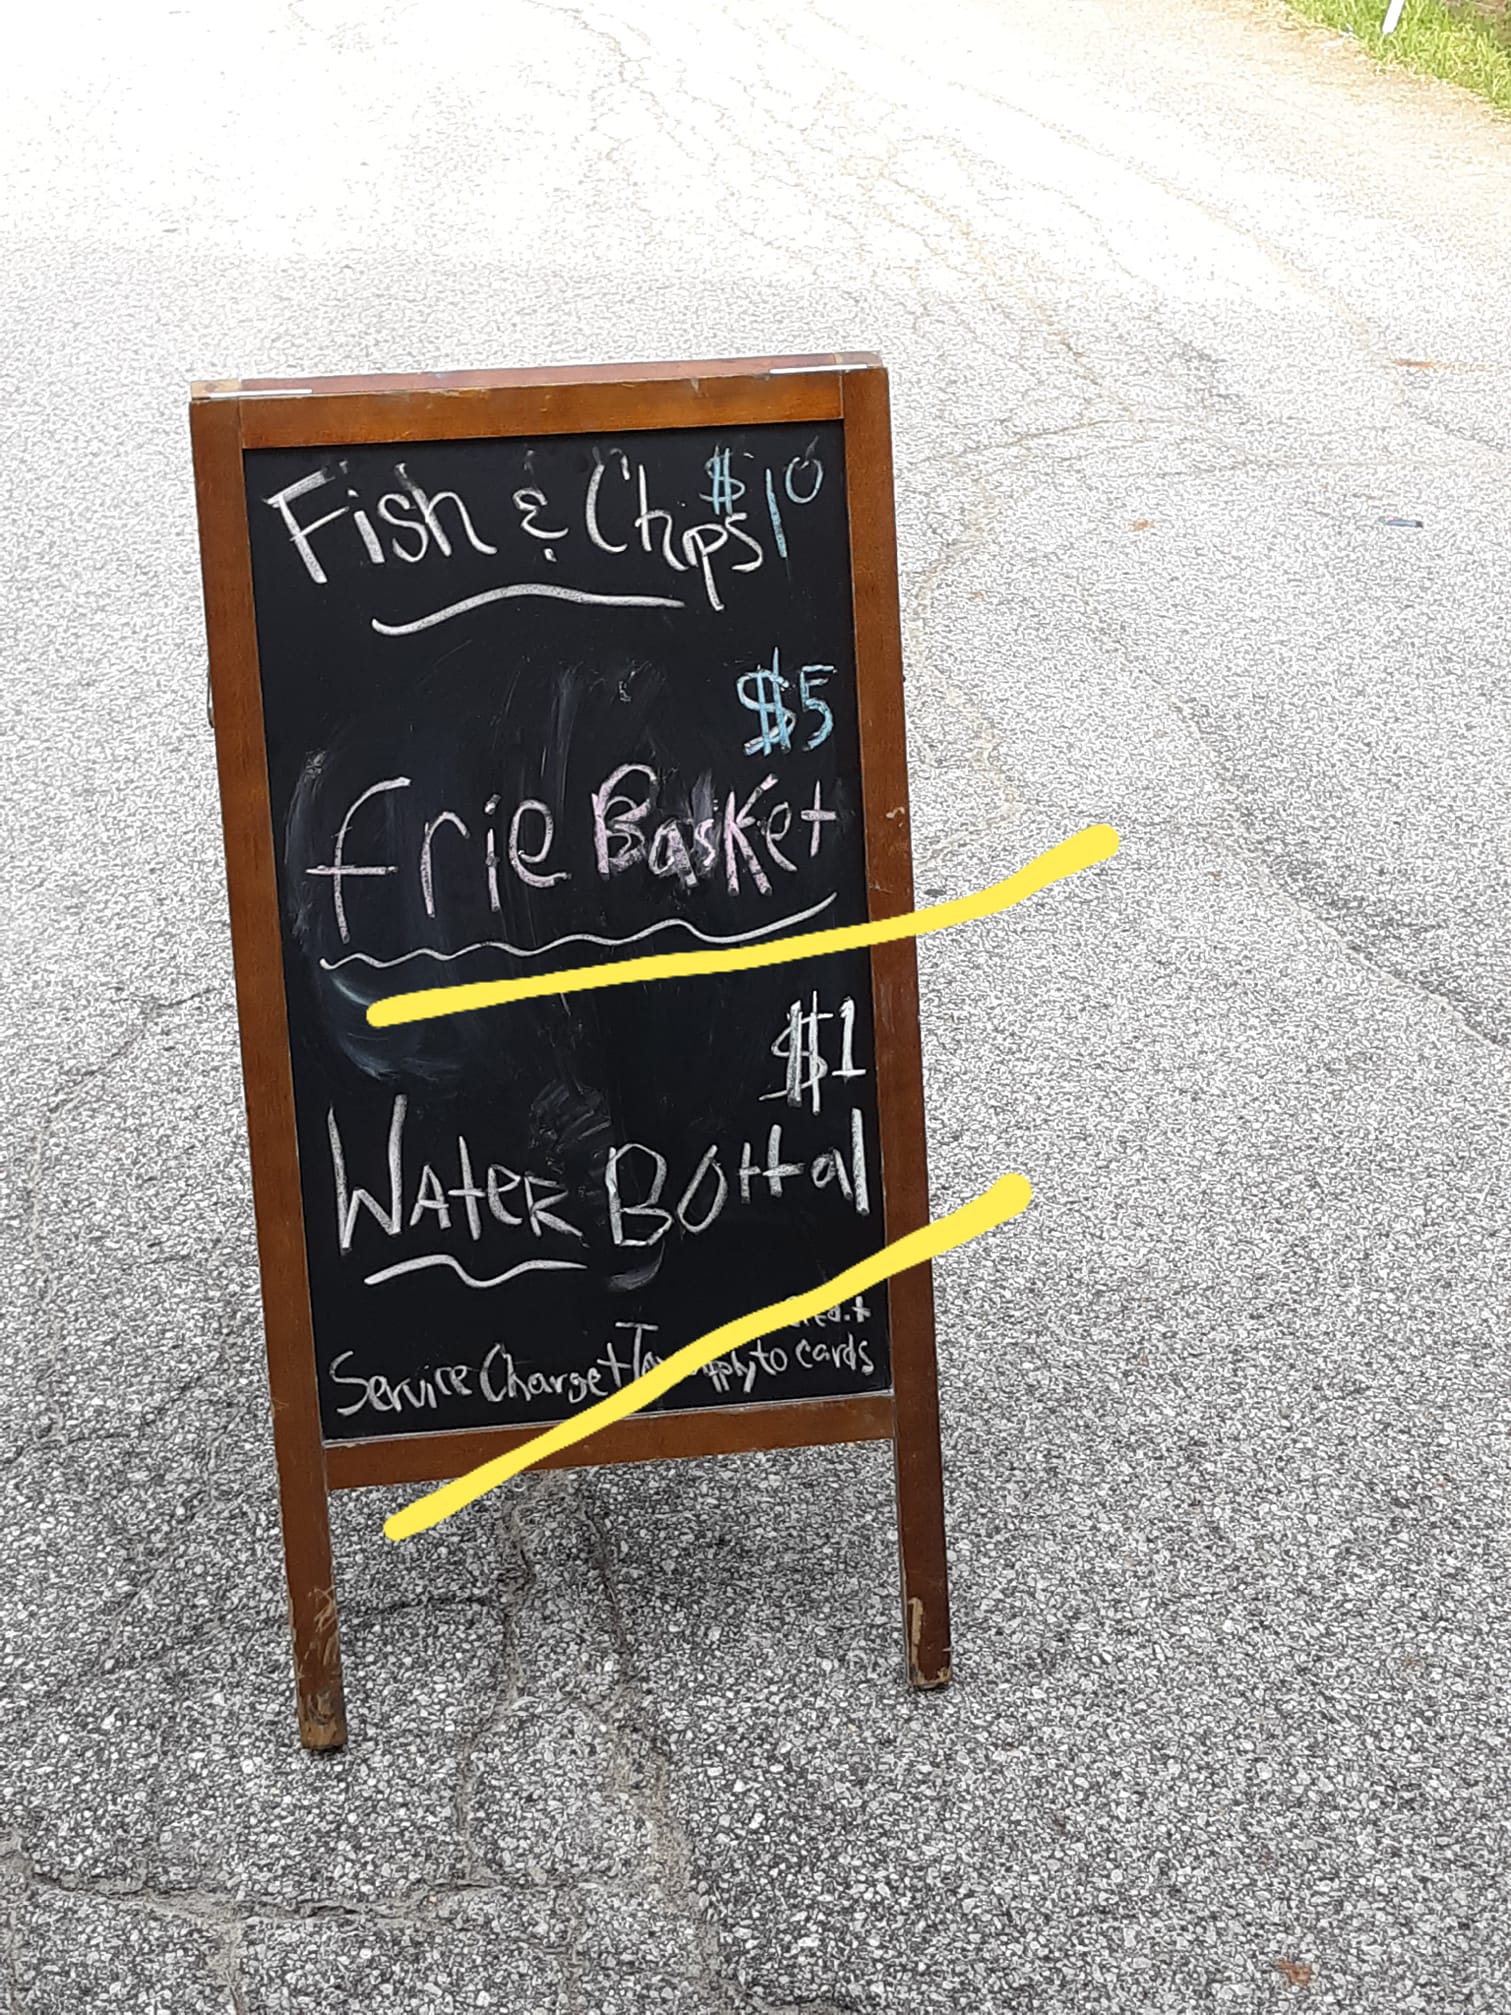 Fish & Chips $10
$5
frie Basket
$1
WAteR BOttal
Credit
Service Charge + Tax apply to cards